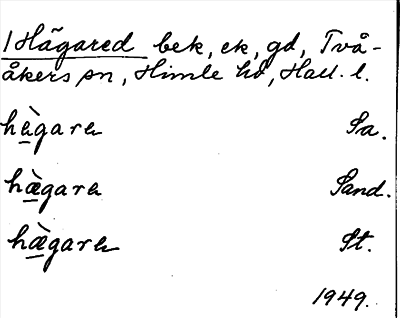 /Hägared bek, ek, gd, Två-
åkers sn, Himle hd, Hall. l.
hè̱gara Sa.
hæ̱̀gara Sand.
hæ̱̀gara St.
1949.